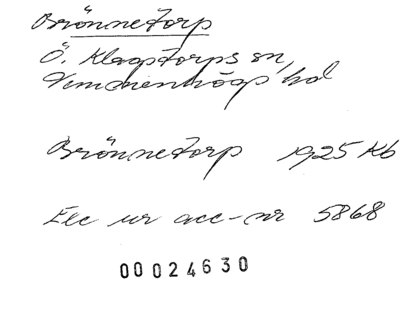 Brönnetorp
Ö. Klagstorps sn,
Vemmenhögs hd
Brönnetorp 1925 Kb
Exc ur acc-nr 5868
00024630